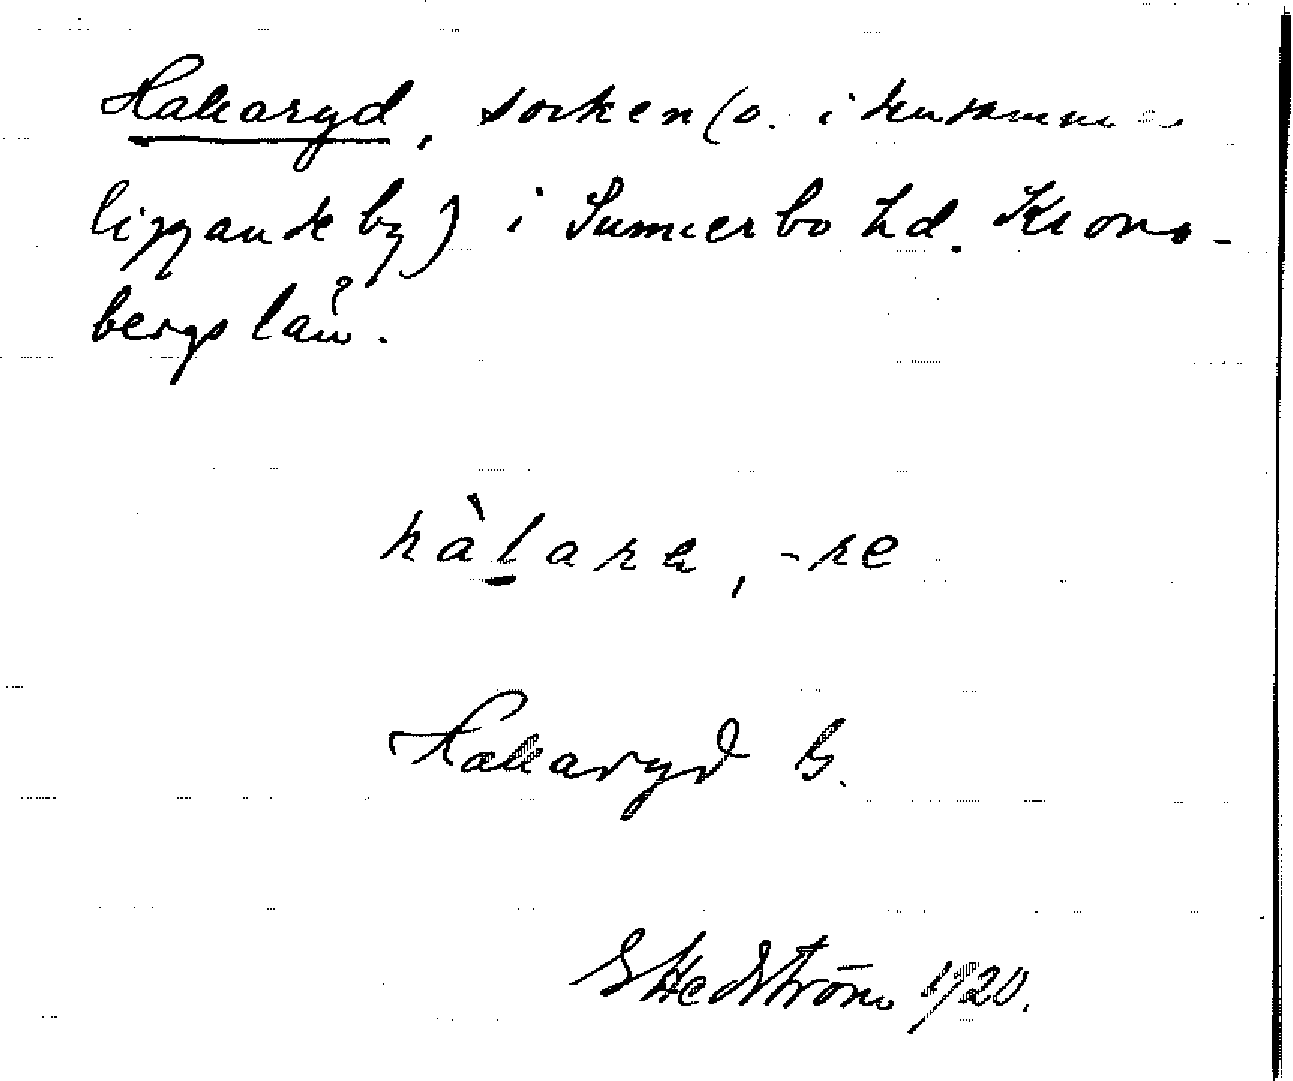 Hallaryd, socken (o. i densamma
liggande by) i Sunnerbo hd. Krono-
bergs län.
hàlara, -re
Hallaryd S.
G Hedström 1920.